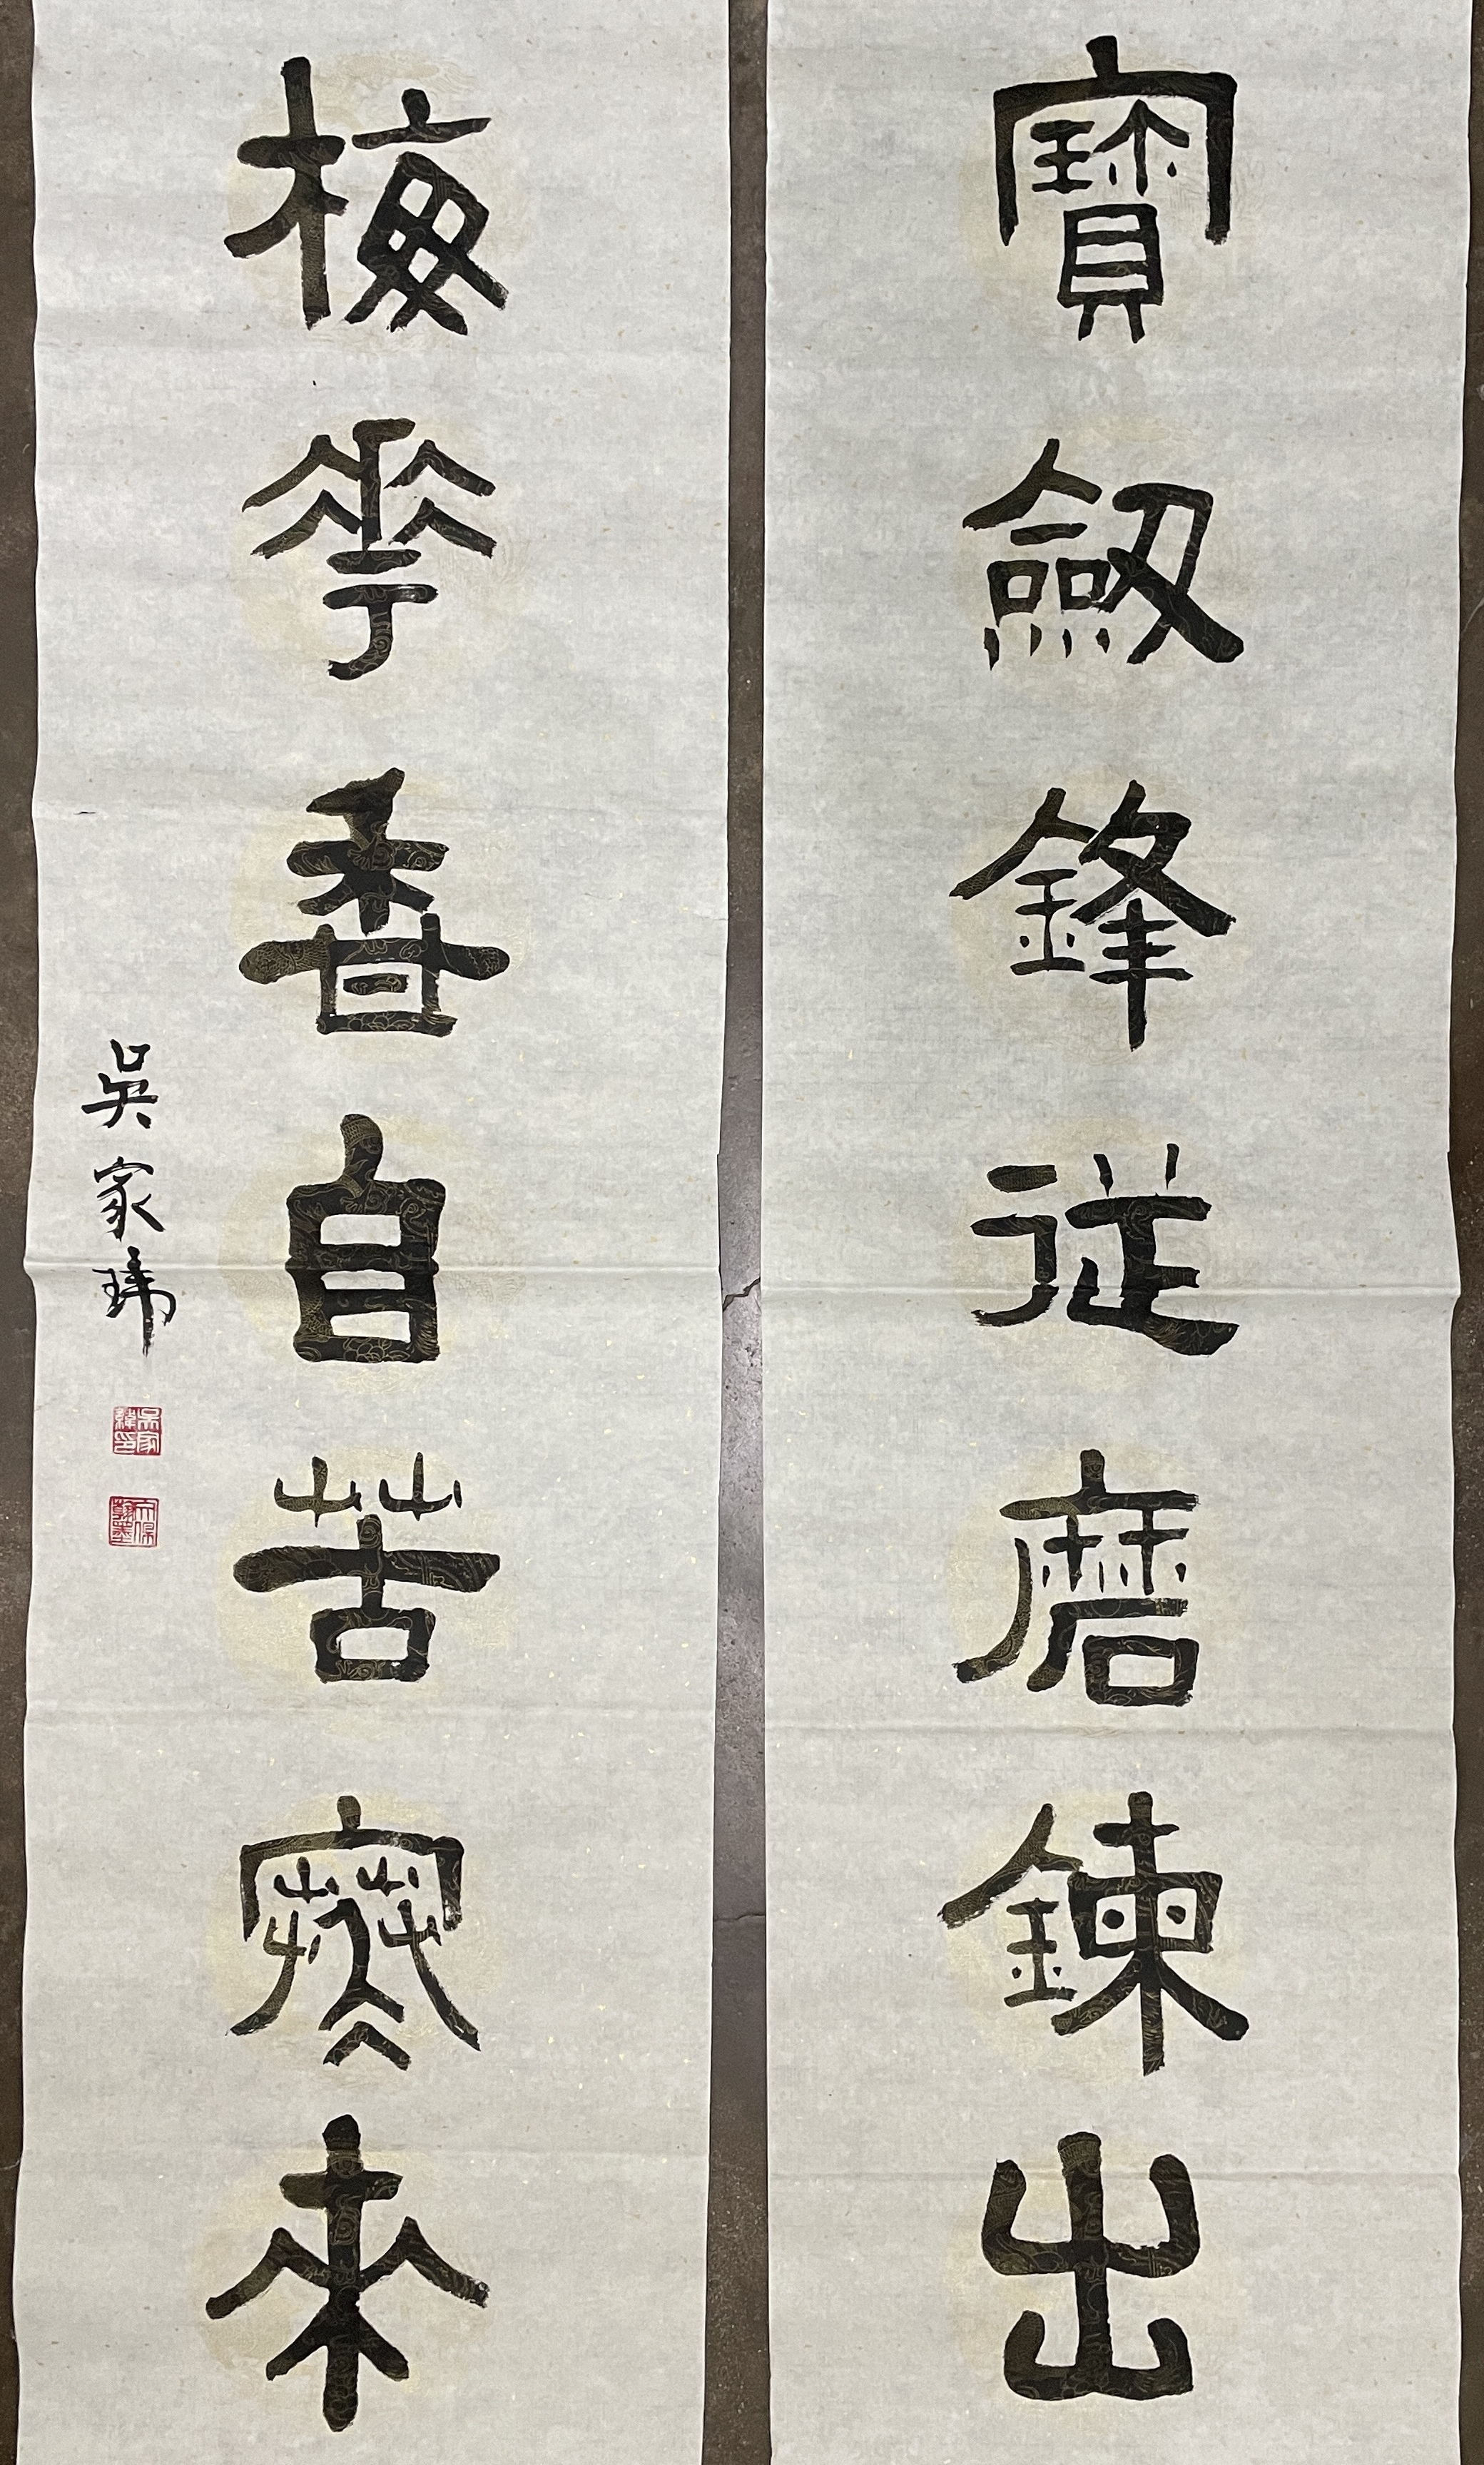 寶劔鋒従磨鍊出
梅花香自苦寒來
吳家瑋
吳家